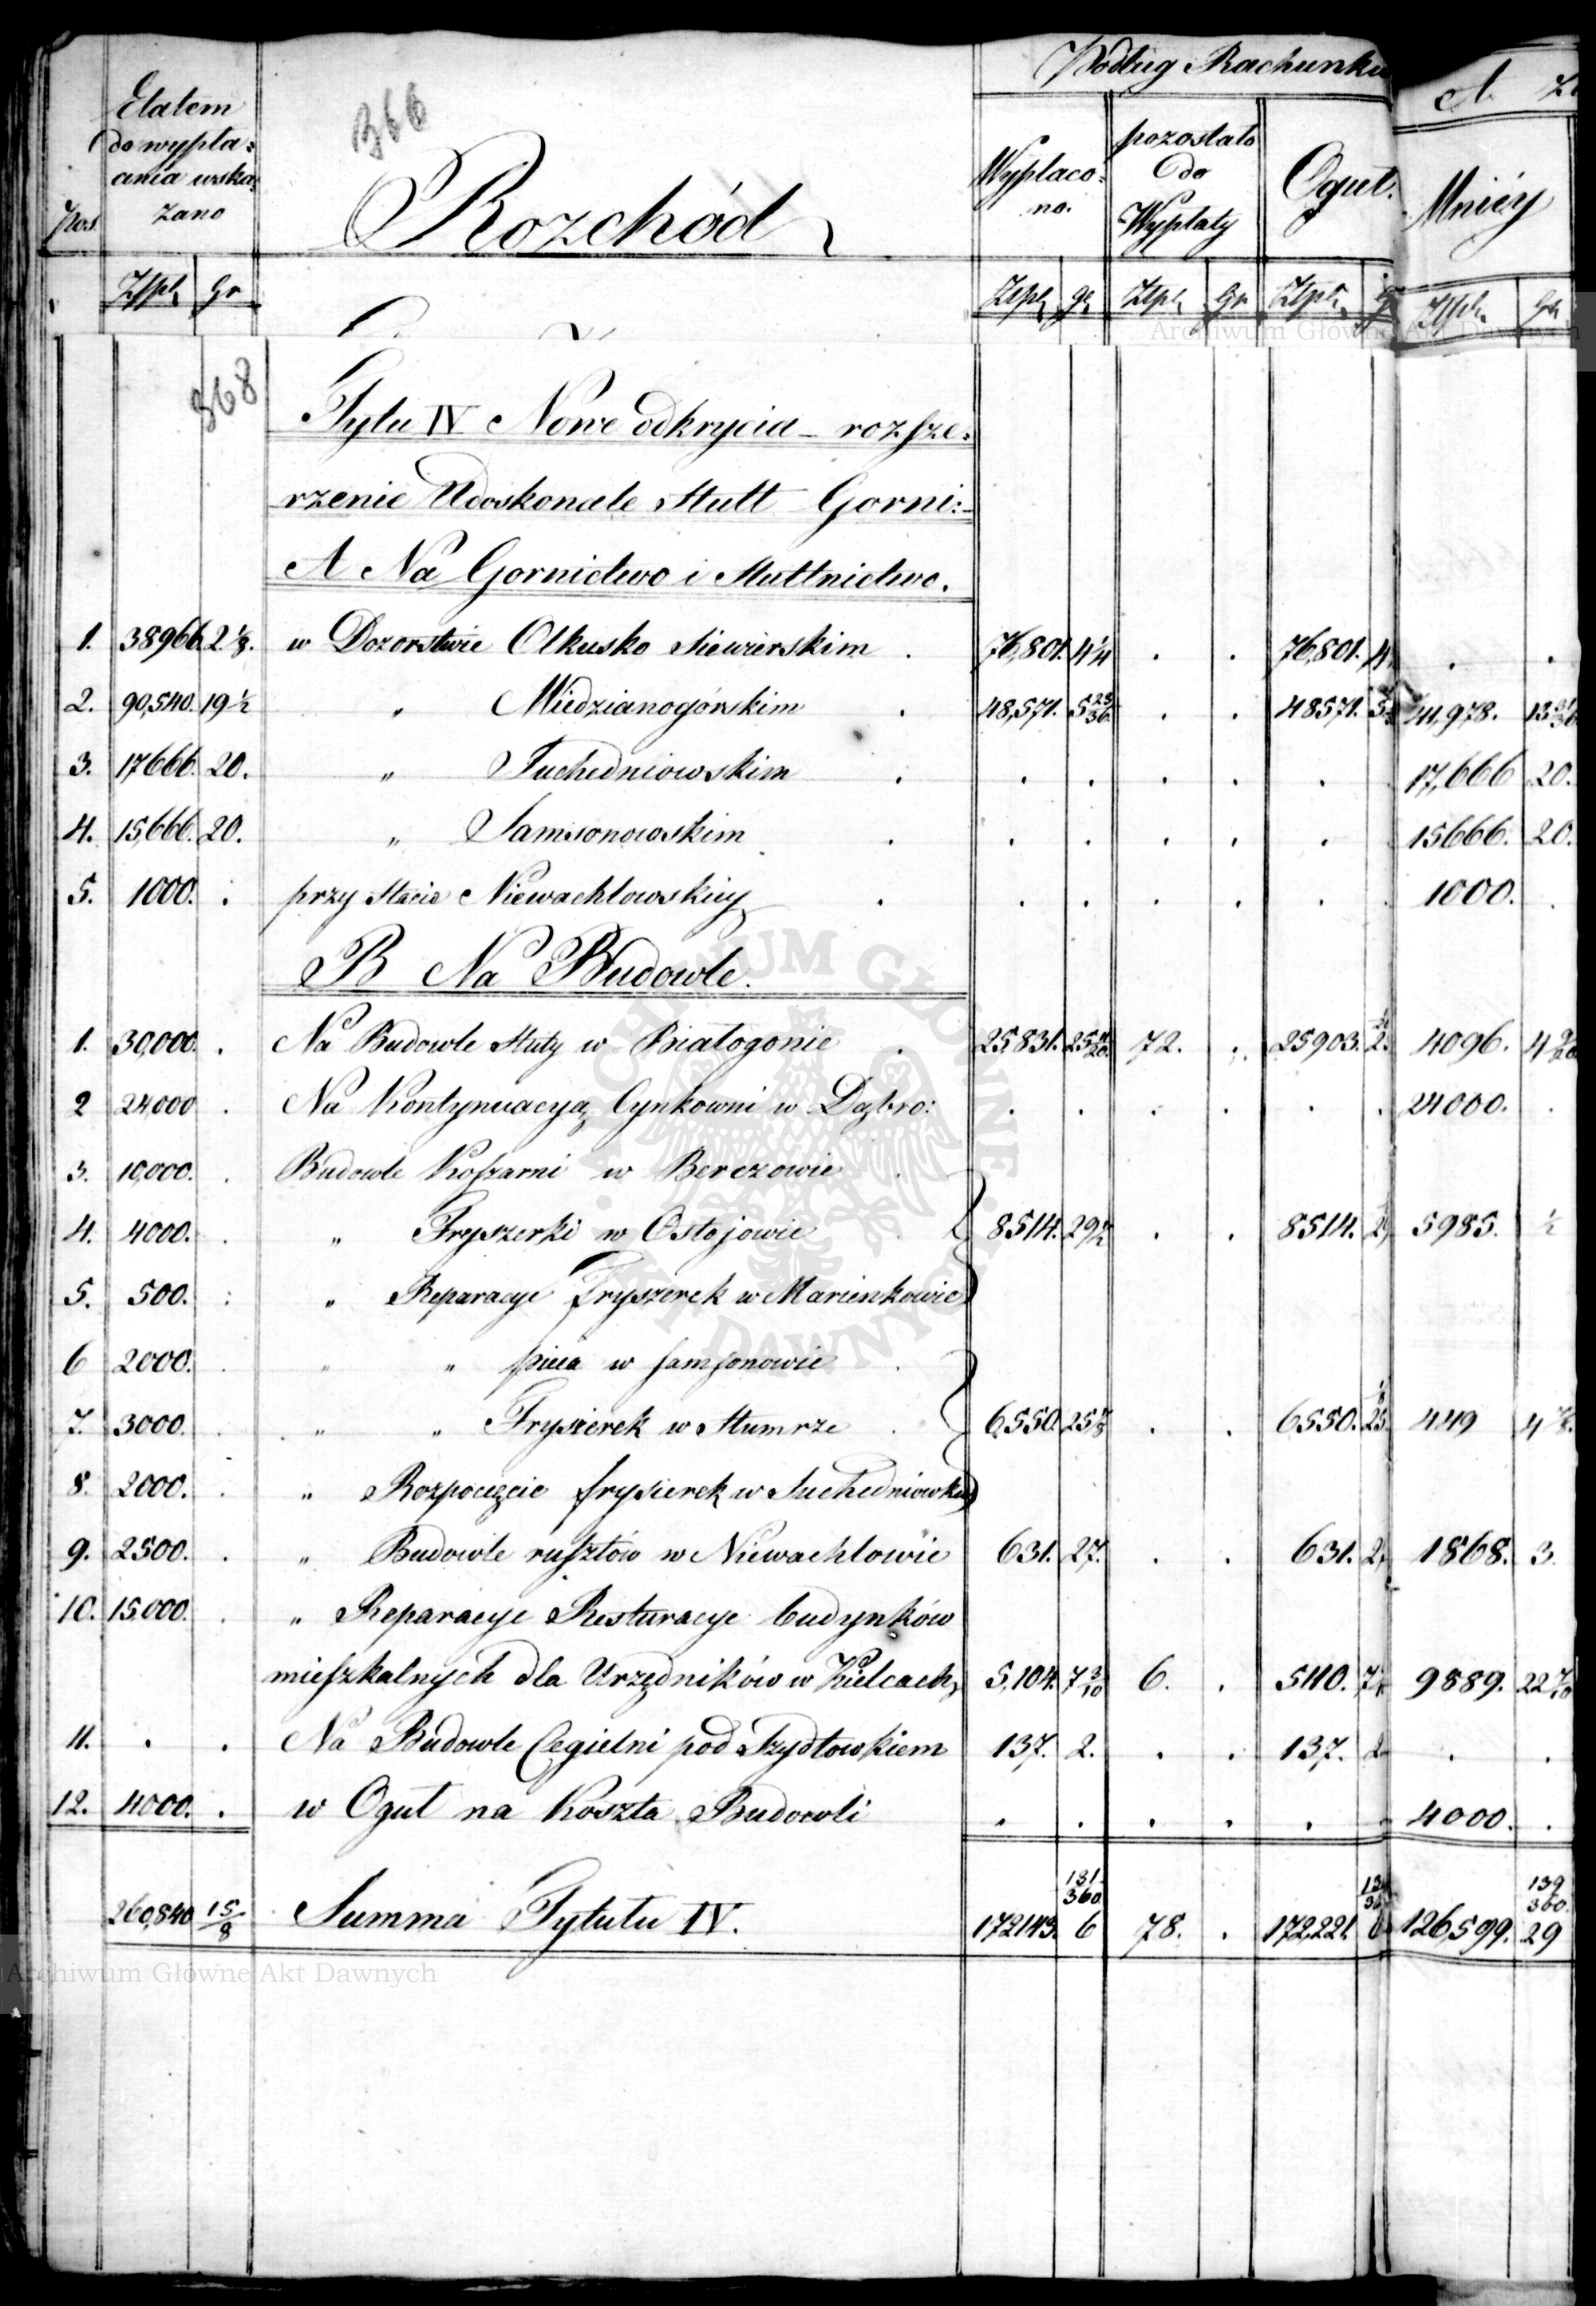 366
Podług Rachunku
A
Pos.
Etatem
do wypła=
cania wska=
zano
Rozchód
Wypłaco=
no.
pozostało
do
Wypłaty
Oguł.
Mniéy
Złpl. Gr
Złpl. gr Złpl. Gr Złpl. Złpl. Gr
368
Tytu IV Nowe odkrycia – rozsze=
rzenie Udoskonale Hutt Gorni:
A Na Gornictwo i Huttnictwo.
1. 38966. 2 1/8. w Dozorstwie Olkusko Siewierskim . 76,801. 4 1/4 . . 76,801. 4 . .
2. 90,540. 19 1/2 " Miedzianogórskim . 48,571. 5 23/36 . . 48571. 5 41,978. 13 31/36
3. 17666. 20. " Suchedniowskim . . . . . . 17,666 20.
4. 15,666. 20. " Samsonowskim . . . . . . 15666. 20.
5. 1000. . przy Hucie Niewachlowskiey . . . . . . . 1000. .
B Na Budowle.
1. 30,000. . Na Budowle Huty w Białogonie . 25831. 25 11/20. 72. . 25903. 2. 4096. 4 9/20
2 24000 . Na Kontynuacyą Cynkowni w Dąbro: . . . . . . 24000. .
3. 10,000. . Budowle Koszarni w Berezowie .
4. 4000. . " Fryszerki w Ostojowie 8514. 29 1/2 . . 8514. 29 5985. 1/2
5. 500. : " Reparacye Fryszerek w Marienkowie
6 2000. . " " pieca w Samsonowie .
7. 3000. . " " Fryszerek w Humrze . 6,550. 25 1/8 . . 6550. 25. 449 4 7/8.
8. 2000. . " Rozpoczęcie fryszerek w Suchedniowku
9. 2500. . " Budowle rusztów w Niewachlowie 631. 27. . . 631. 27 1868. 3.
10. 15.000. . " Reparacye Resturacye budynków
mieszkalnych dla Urzędników w Kielcach 5,104. 7 3/10 6. . 5110. 7 9889. 22 7/10
11. . . Na Budowle Cegielni pod Szydłowkiem 137. 2. . . 137. 2 . .
12. 4000. . w Oguł na Koszta Budowli . . . . . . 4000. .
260,840 15/8 Summa Tytułu IV. 172143. 6 131/360 78. . 172,221. 6 126,599. 29 139/360.
Archiwum Główne Akt Dawnych